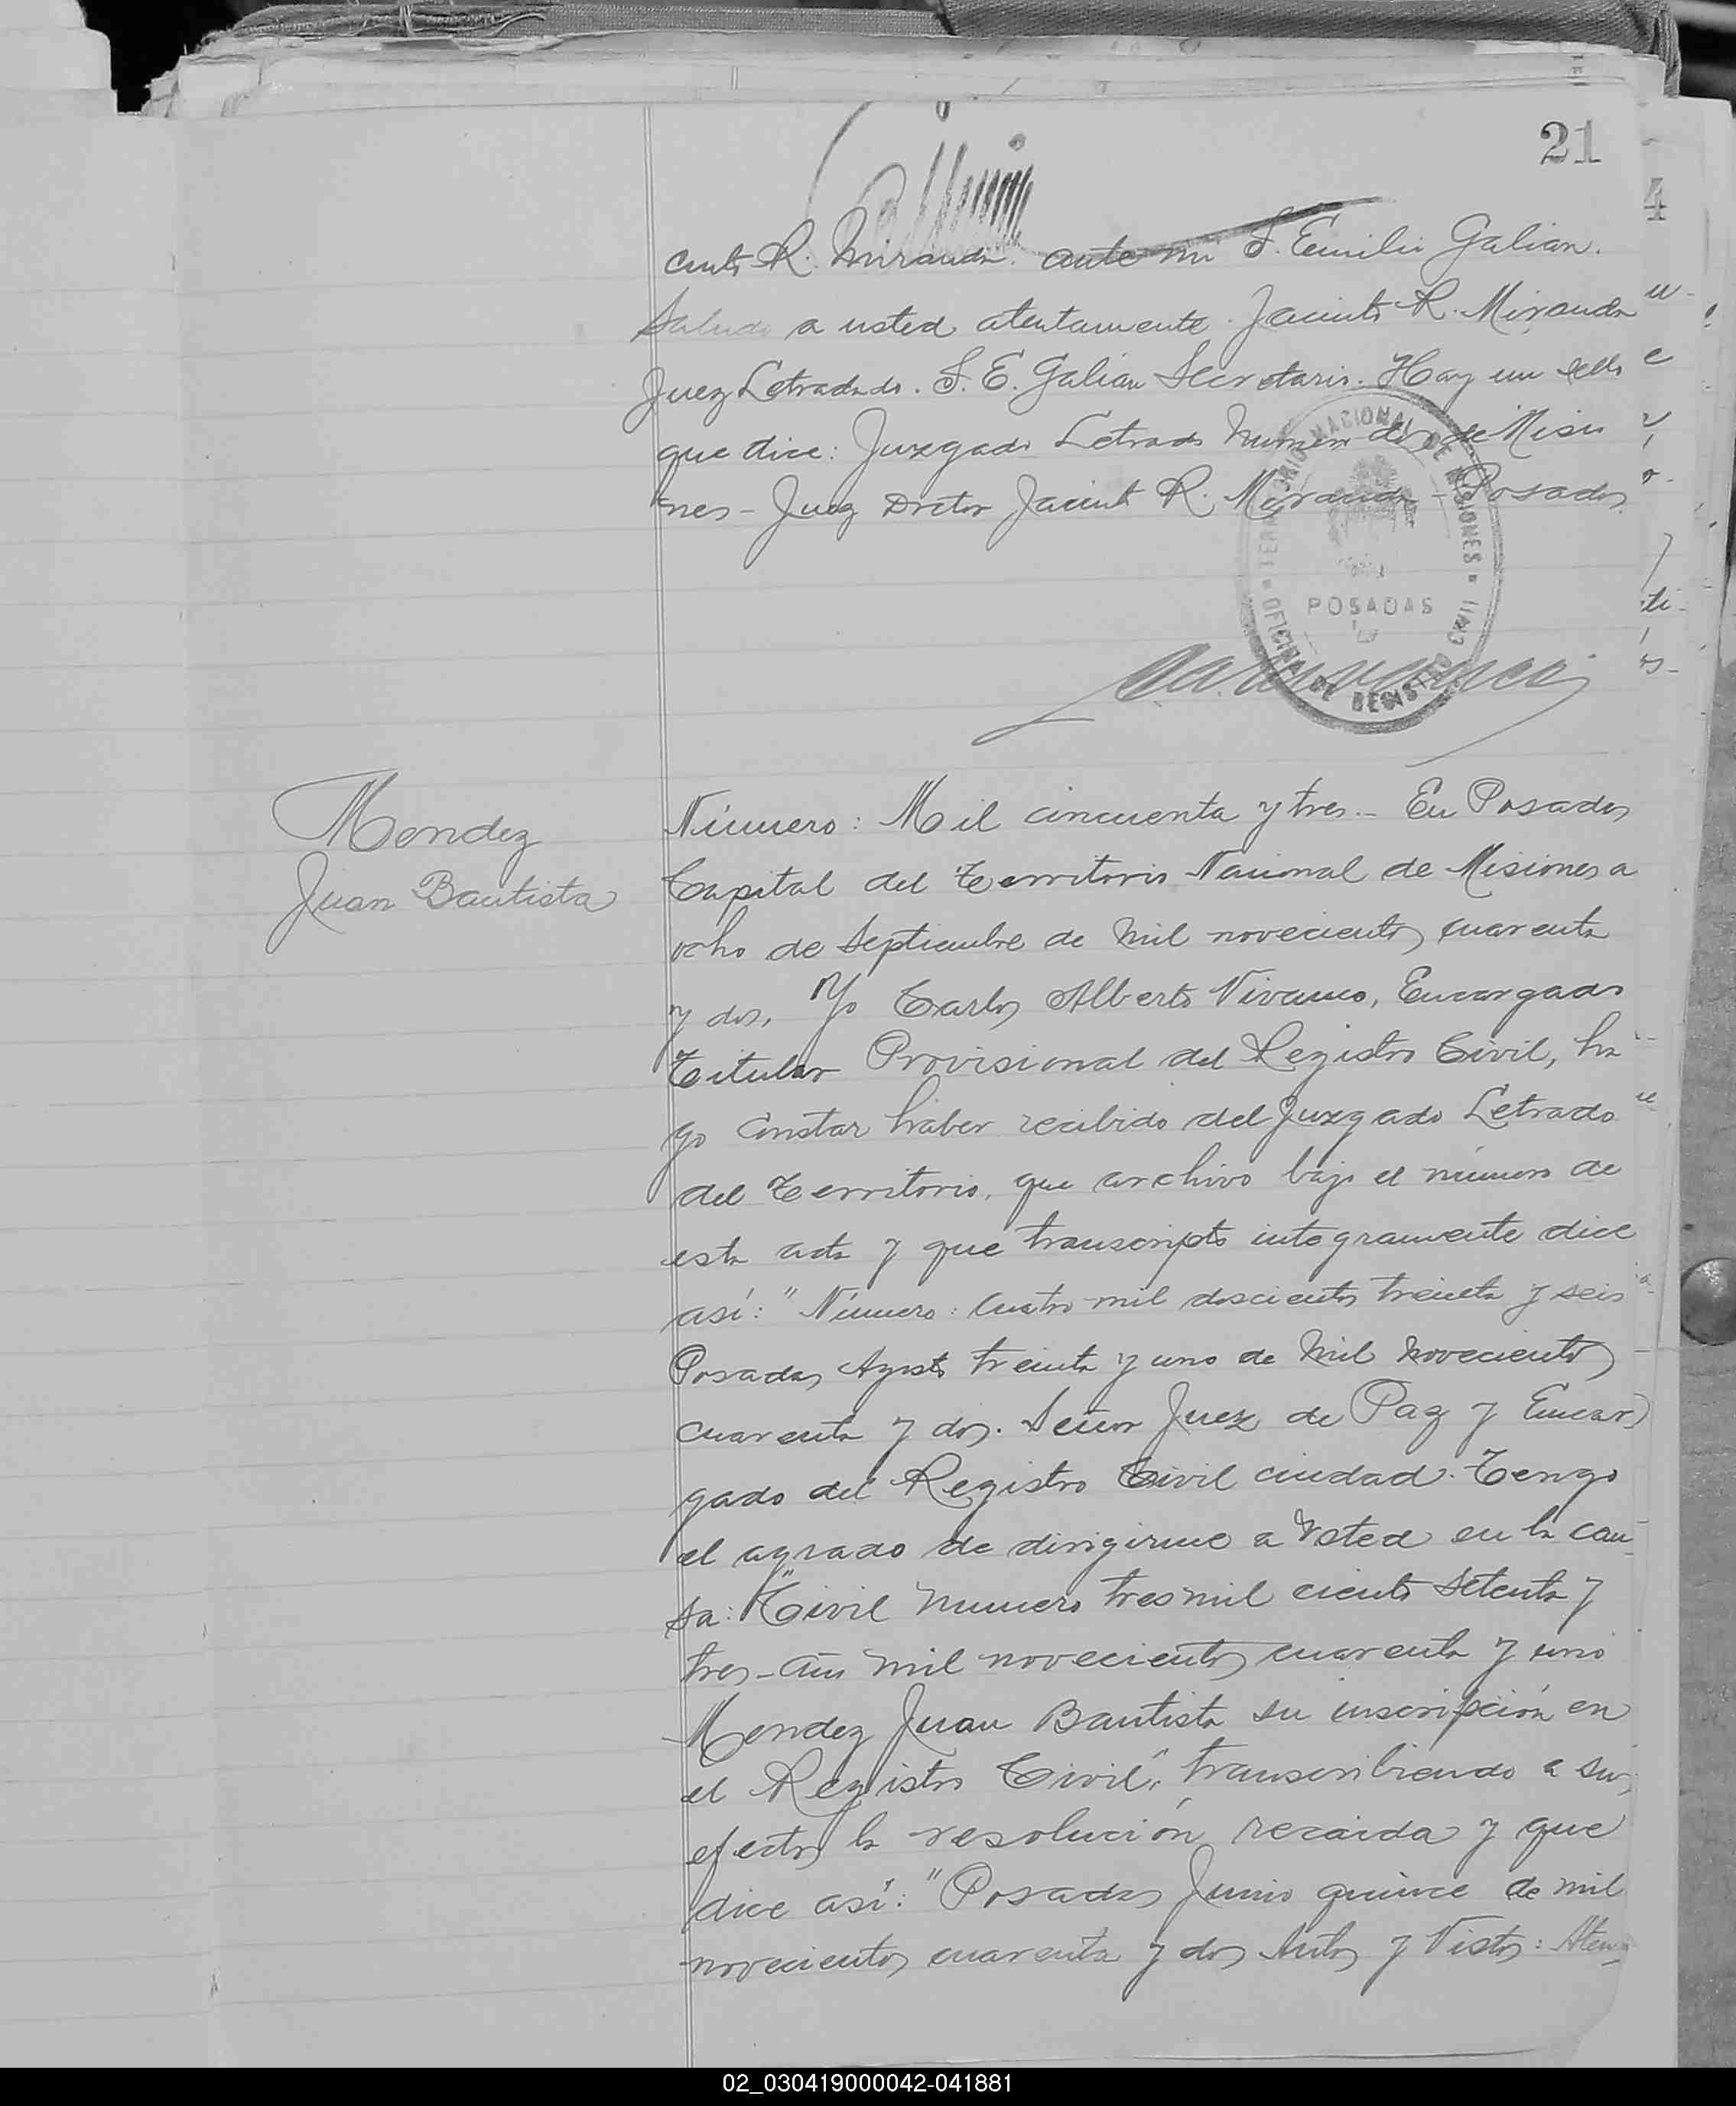 21
cinto R. Miranda. ante mi S. Emilio Galian.
Saludo a usted atentamente. Jacinto R. Miranda
Juez Letrado. S. E. Galian Secretario. Hay un sello
que dice: Juzgado Letrado Numero dos de Misio
nes - Juez Doctor Jacinto R. Miranda - Posadas
TERRITORIO NACIONAL DE MISIONES
POSADAS
OFICINA DE REGISTRO CIVIL
Mendez
Juan Bautista
Número: Mil cincuenta y tres.- En Posadas
Capital del Territorio Nacional de Misiones a
ocho de Septiembre de mil novecientos cuarenta
y dos, Yo Carlos Alberto Vivanco, Encargado
Titular Provisional del Registro Civil, ha
go constar haber recibido del Juzgado Letrado
del Territorio, que archivo bajo el número de
esta acta y que transcripto integramente dice
así: "Número: cuatro mil doscientos treinta y seis
Posadas, Agosto treinta y uno de mil novecientos
cuarenta y dos. Señor Juez de Paz y Encar
gado del Registro Civil ciudad. Tengo
el agrado de dirigirme a Usted en la cau
sa: "Civil Numero tres mil ciento setenta y
tres - año mil novecientos cuarenta y uno
Mendez Juan Bautista su inscripción en
el Registro Civil", transcribiendo a sus
efectos la resolución recaida y que
dice así: "Posadas Junio quince de mil
novecientos cuarenta y dos Autos y Vistos: Aten-
02_030419000042-041881